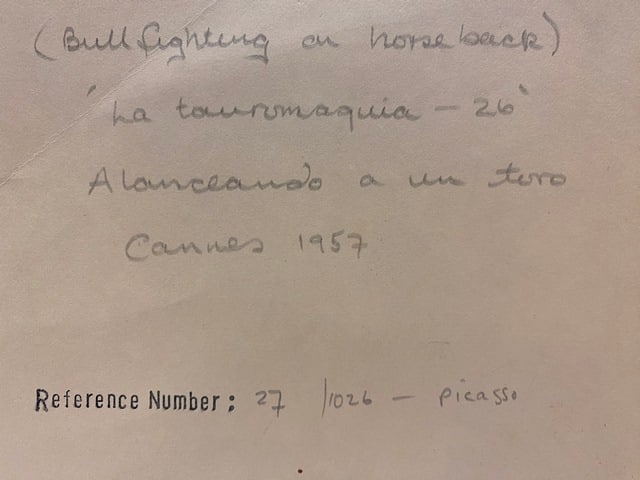 (Bull fighting on horseback)
'La tauromaquia - 26'
Alanceando a un toro
Cannes 1957
Reference Number: 27 /1026 - picasso